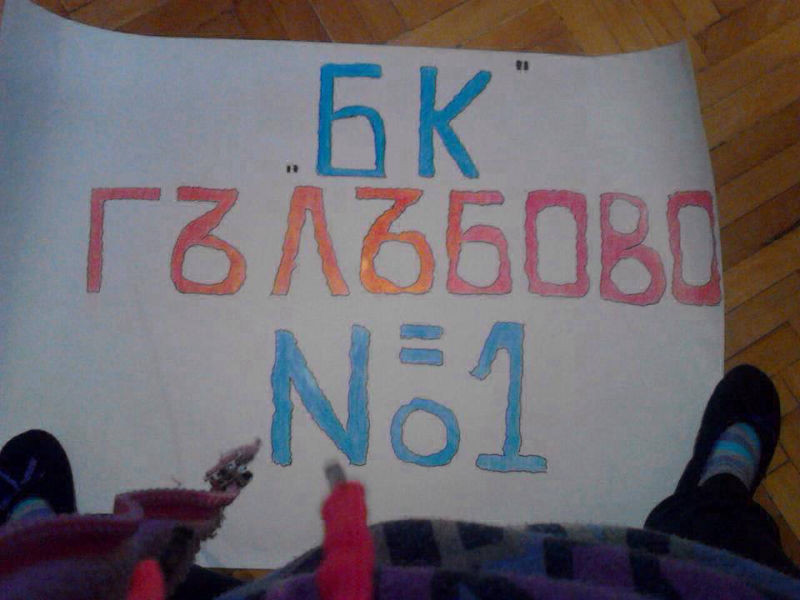 „БК"
ГЪЛЪБОВО
№1